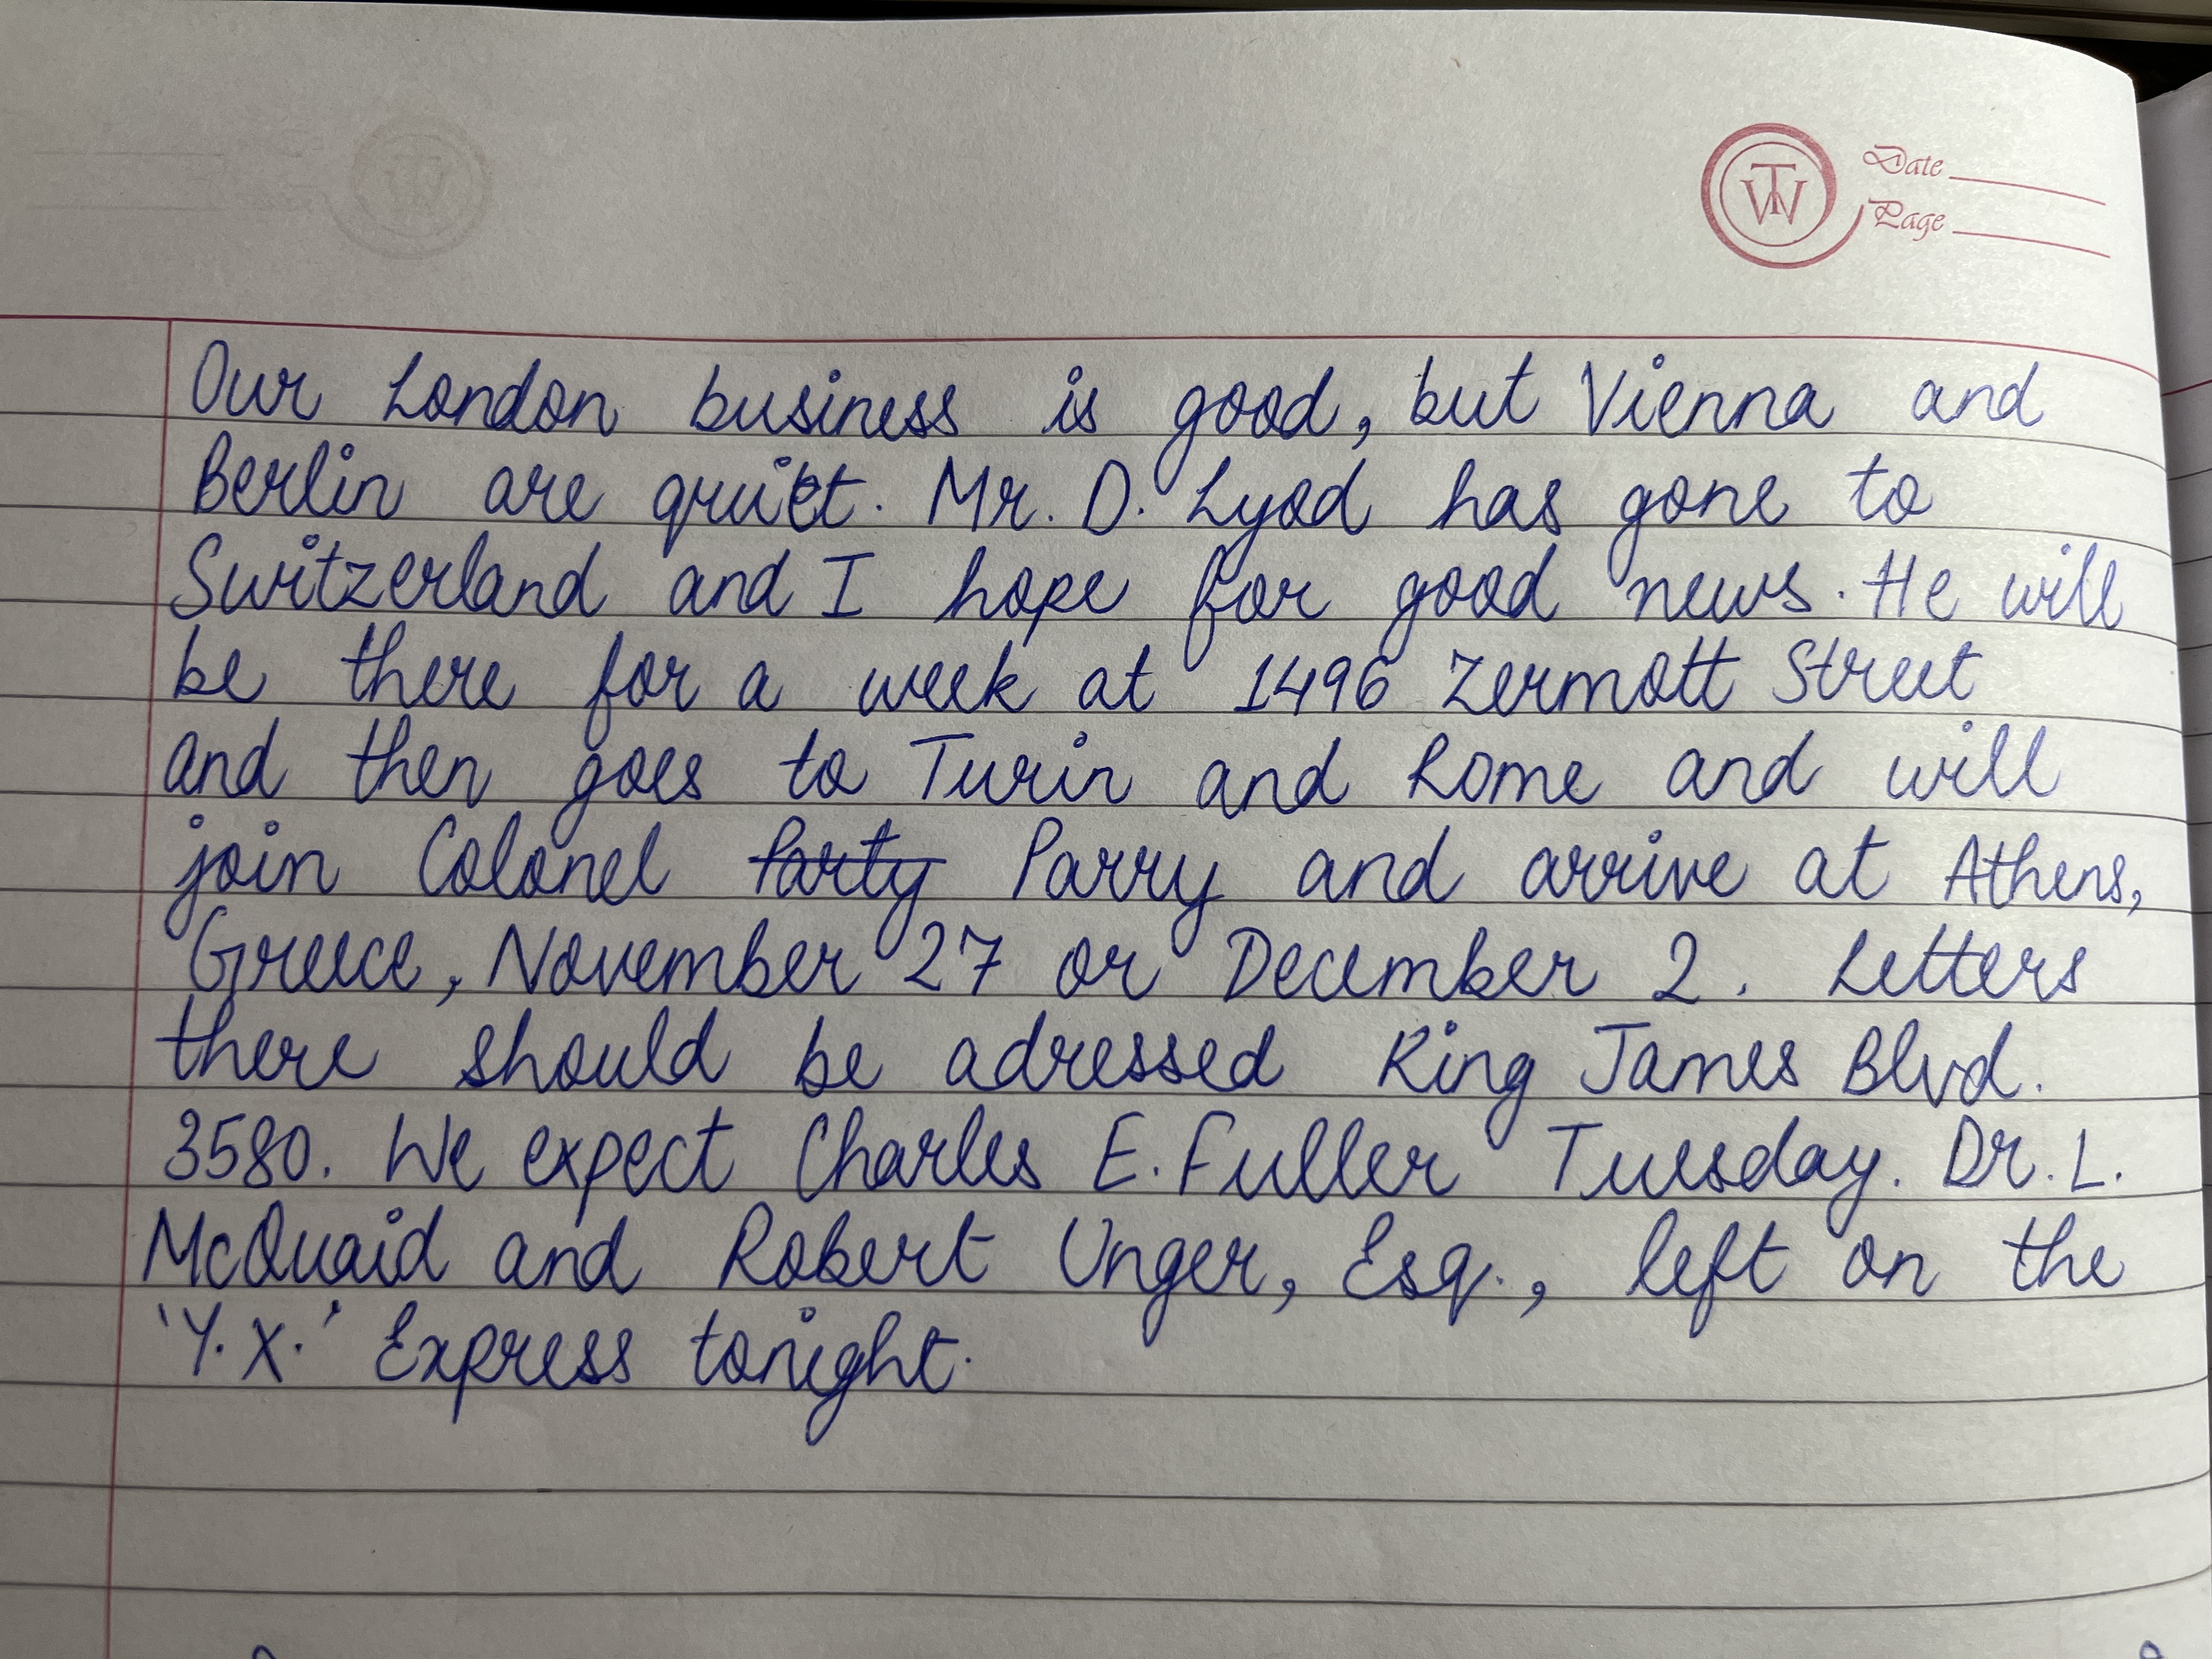 Date
Page
Our London business is good, but Vienna and
Berlin are quiet. Mr. D. Lyod has gone to
Switzerland and I hope for good news. He will
be there for a week at 1496 Zermott Street
and then goes to Turin and Rome and will
join Colonel Parry and arrive at Athens,
Greece, November 27 or December 2. Letters
there should be adressed King James Blvd.
3580. We expect Charles E. Fuller Tuesday. Dr. L.
McQuaid and Robert Unger, Esq., left on the
"Y.X." Express tonight.